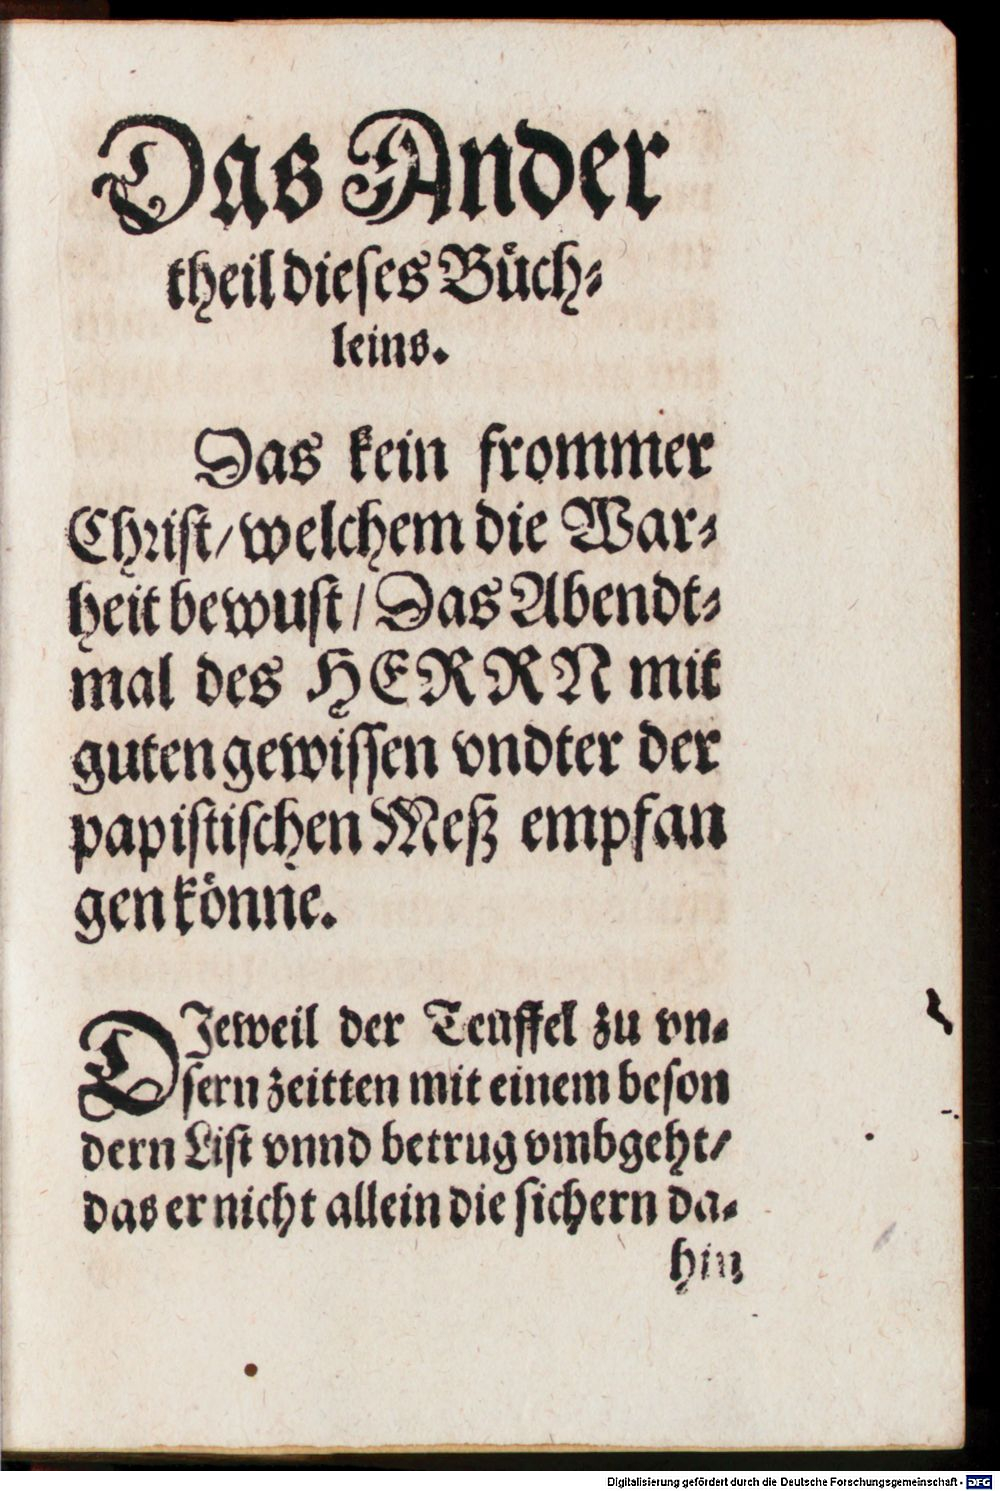 Das Ander
theil dieses Büch-
leins.
Das kein frommer
Christ/ welchem die War-
heit bewust/ Das Abendt-
mal des HERRN mit
guten gewissen vndter der
papistischen Meß empfan
gen könne.
DJeweil der Teuffel zu vn-
sern zeitten mit einem beson
dern List vnnd betrug vmbgeht/
das er nicht allein die sichern da-
hin
Digitalisierung gefördert durch die Deutsche Forschungsgemeinschaft - DFG